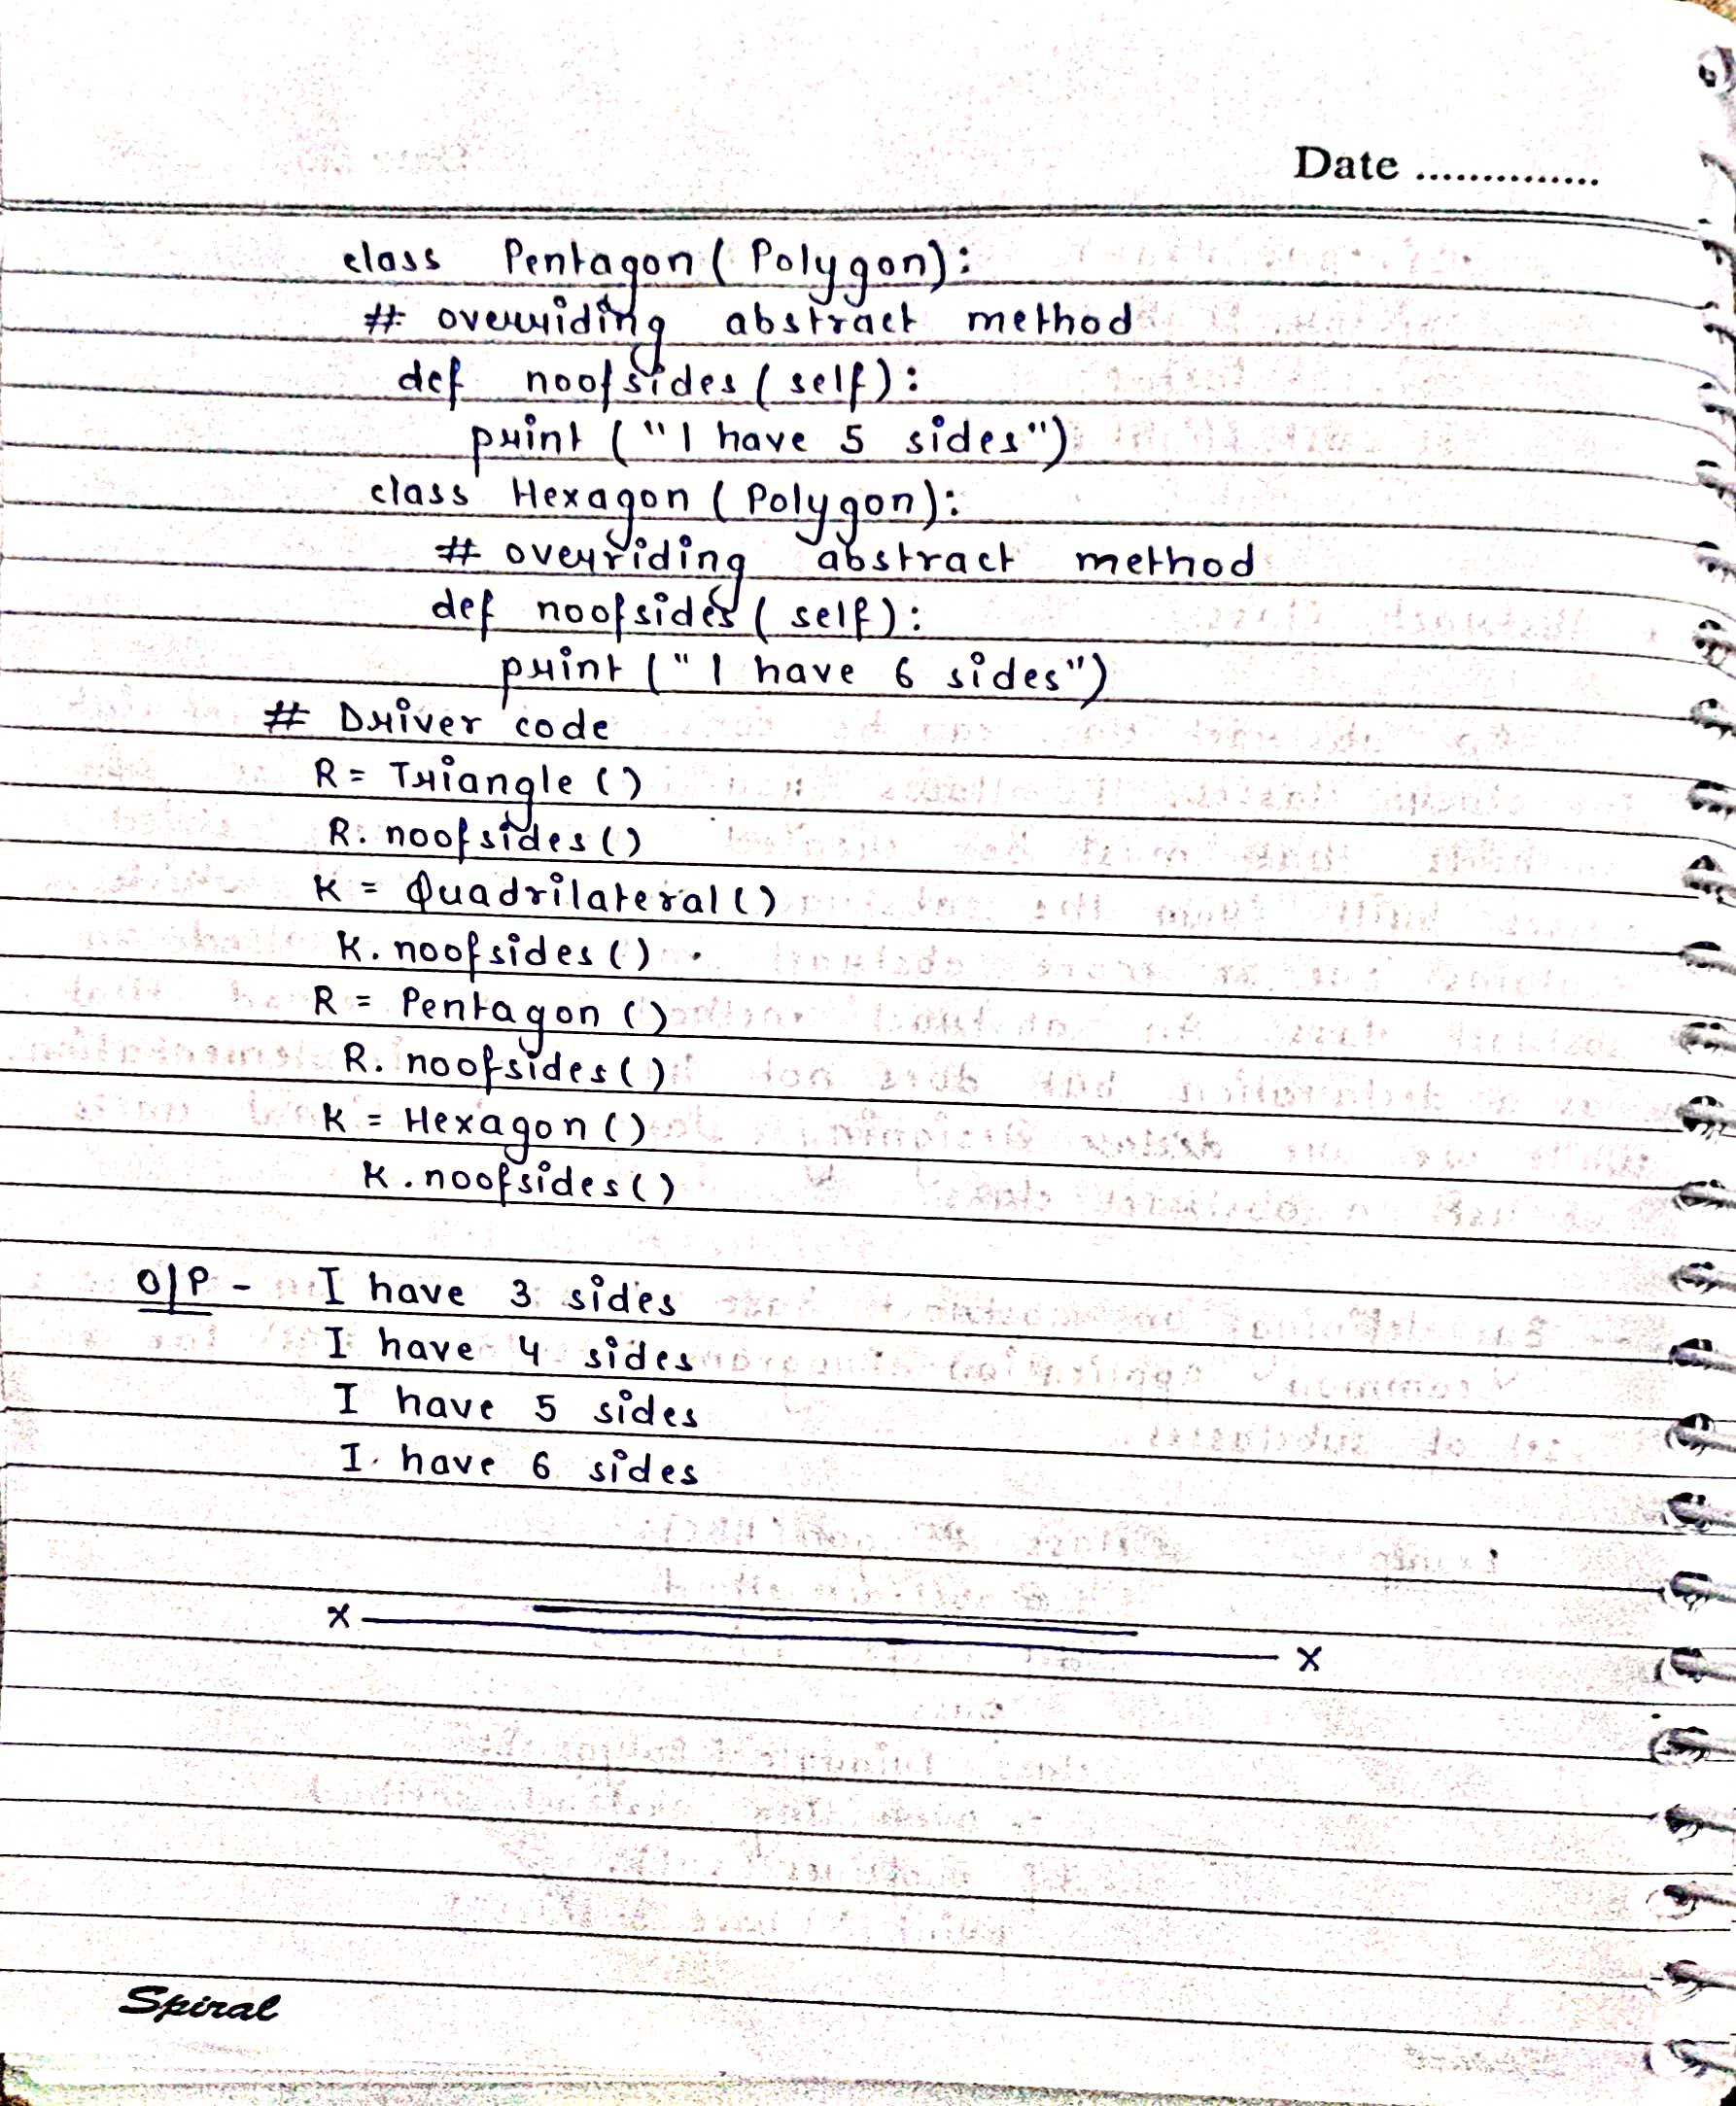 Date ..............
class Pentagon (Polygon):
# overriding abstract method
def noofsides (self):
print ("I have 5 sides")
class Hexagon (Polygon):
# overriding abstract method
def noofsides (self):
print ("I have 6 sides")
# Driver code
R = Triangle ()
R. noofsides ()
K = Quadrilateral ()
K. noofsides ()
R = Pentagon ()
R. noofsides ()
K = Hexagon ()
K. noofsides ()
O|P - I have 3 sides
I have 4 sides
I have 5 sides
I have 6 sides
x x
Spiral